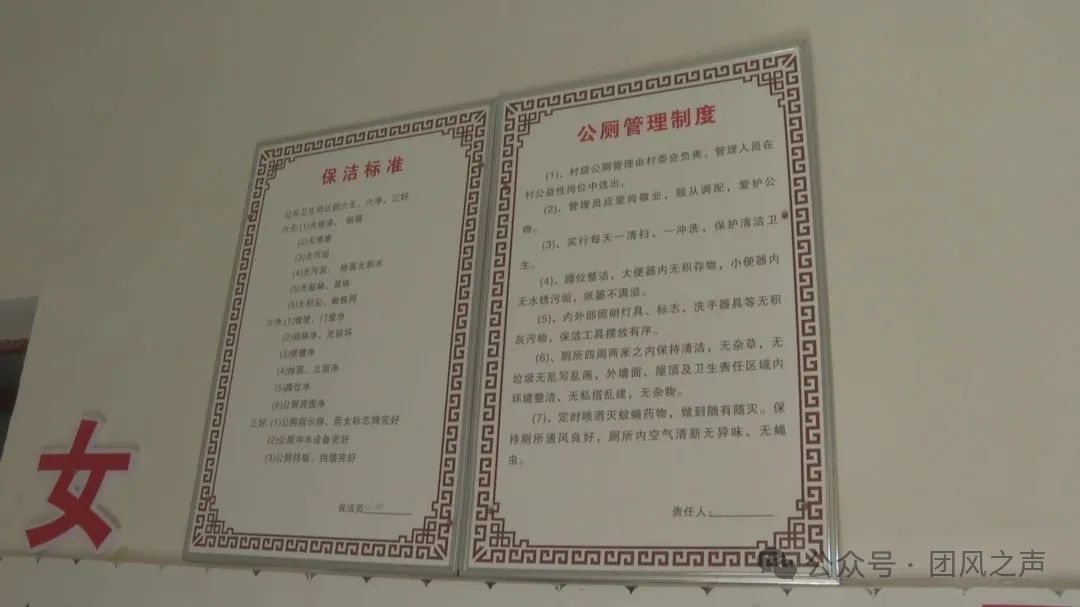 保洁标准
公共卫生间达到六无、六净、三好
六无:(1)无痰渍、烟蒂
(2)无堵塞
(3)无污垢
(4)无污泥、地面无积水
(5)无蛆蝇、尿味
(6)无积尘、蜘蛛网
六净:(1)墙壁、门窗净
(2)间隔净、无损坏
(3)便槽净
(4)地面、立面净
(5)蹲位净
(6)公厕周围净
三好:(1)公厕指示牌、男女标志牌完好
(2)公厕冲水设备完好
(3)公厕挡板、挡墙完好
保洁员:
公厕管理制度
(1)、村级公厕管理由村委会负责,管理人员在
村公益性岗位中选出。
(2)、管理员应爱岗敬业,服从调配,爱护公
物。
(3)、实行每天一清扫、一冲洗,保护清洁卫
生。
(4)、蹲位整洁,大便器内无积存物,小便器内
无水锈污垢,纸篓不满溢。
(5)、内外部照明灯具、标志、洗手器具等无积
灰污物,保洁工具摆放有序。
(6)、厕所四周两米之内保持清洁,无杂草,无
垃圾无乱写乱画,外墙面、屋顶及卫生责任区域内
环境整洁、无私搭乱建,无杂物。
(7)、定时喷洒灭蚊蝇药物,做到随有随灭。保
持厕所通风良好,厕所内空气清新无异味、无蝇
虫。
责任人:
女
公众号·团风之声